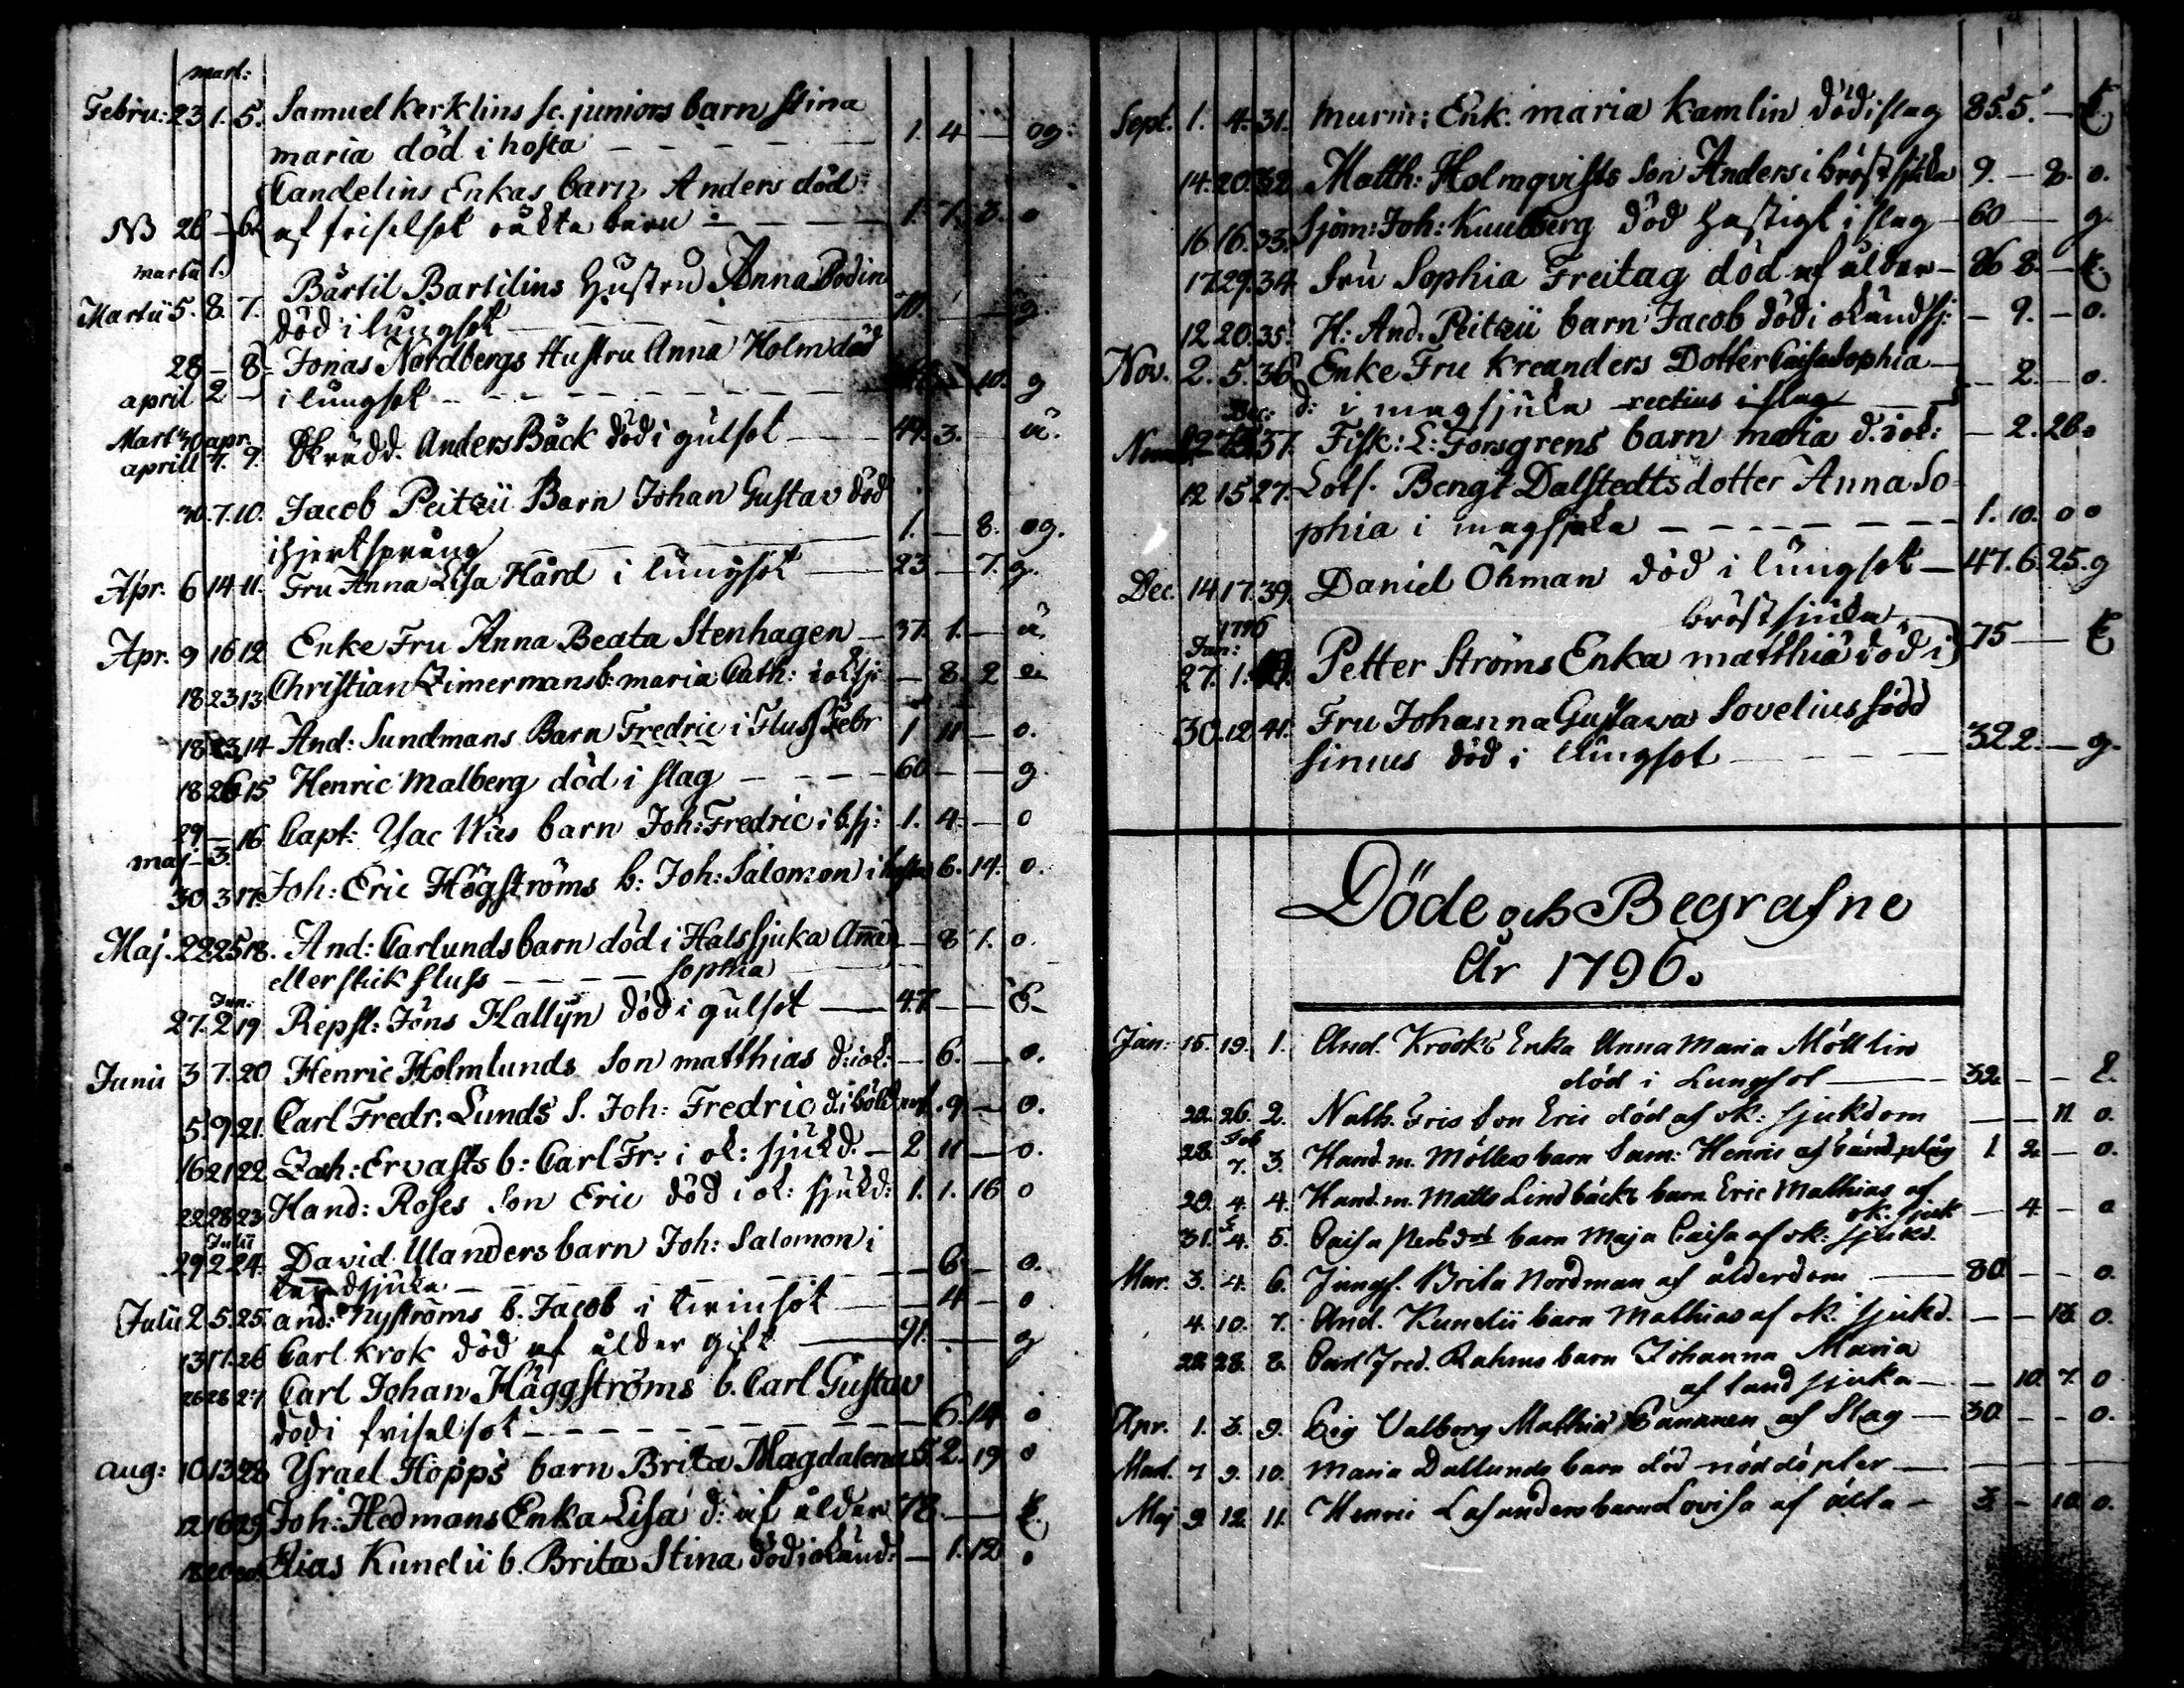 mart:
Febru: 23 1. 5. Samuel Kerklins sc. juniors barn Stina
maria död i hosta — 1. 4 — og.
Candelins Enkas barn Anders död
NB 26 — 6. af friselsot — 1. 7. 3. o
martii 1.
Bärtil Bartilins Hustru Anna Bodin
Martii 5. 8. 7. död i lungsot — 70. — g.
28 — 8. Jonas Nordbergs Hustru Anna Holm död
april 2 — i lungsot — 10. g
Mart 30 apr.
aprill 4. 9. Skrädd. Anders Bäck död i gulsot — 49. 3. — ä.
30. 7. 10. Jacob Peitzii Barn Johan Gustav död
i hjertsprång — 1. — 8. og.
Apr. 6 14 11. Fru Anna Lisa Hård i lungsot — 23 — 7. g.
Apr. 9 16 12 Enke Fru Anna Beata Stenhagen — 37. 1. — ä.
18 23 13 Christian Zimermans b: maria Cath: i ok sj: — 8. 2
18 23 14 And: Sundmans Barn Fredric i Fluss Febr 1 11 — o.
18 26 15 Henric Malberg död i slag — 60 — — g.
29 — 16 Capt: Ysac Wies barn Joh: Fredric i b. sj: 1. 4. — o
maj — 3.
30 3 17. Joh: Eric Högströms b: Joh: Salomon i hosta 6. 14. o.
Maj. 22 25 18. And: Carlunds barn död i Halssjuka Anna — 8 1. o.
eller stick fluss — Sophia
Jun.
27. 2 19 Repsl: Jöns Hallyn död i gulsot — 47 — E
Junii 3 7. 20 Henric Holmlunds Son matthias d: i ok: — 6. — o.
5. 9 21. Carl Fredr: Lunds S. Joh: Fredric d. i . 9 — o.
16 21 22 Zach: Ervasts b: Carl Fr: i ok: sjukd: — 2 11 — o.
22 28 23. Hand: Roses Son Eric död i ok: sjukd: 1. 1. 16 o
Julii
29 2 24. David Ulanders barn Joh: Salomon i
tandsjuka — 6 — o.
Julii 2 5. 25. and: Nyströms b. Jacob i tvinsot — 4 — o
13 17. 26 Carl Krok död af ålder gift — 91. — g
26 28 27 Carl Johan Häggströms b. Carl Gustav
död i friselsot — 6. 14 o
aug: 10 13 28 Ysrael Hopps barn Brita Magdalena 5. 2. 19 o
12 16 29 Joh: Hedmans Enka Lisa d: af ålder 78. — E
18 20 30 Elias Kunelii b. Brita Stina död i okänd: — 1. 12 o
Sept. 1. 4. 31. murm: Enk. maria Kamlin död i slag 85. 5. — E
14. 20. 32 Matth: Holmqvists Son Anders i bröstsjuka 9. — 8. o.
16 16. 33. Sjöm: Joh: Kuulberg död hastigt i slag — 60 — g.
17. 29. 34. Fru Sophia Freitag död af ålder — 86 8. — E
12 20. 35. H: And. Peitzii barn Jacob död i okänd sj: — 9. — o.
Nov. 2. 5. 36. Enke Fru Kreanders Dotter Caisa Sophia —
d: i magsjuka rectius i slag — 2. — o.
Dec:
37. Fisk: E: Forsgrens barn maria d. i ok: — 2. 26 o
12 15 27. Lots. Bengt Dalstedts dotter Anna So-
phia i magsjuka — 1. 10. o o
Dec. 14 17. 39. Daniel Öhman död i lungsot — 47. 6. 25. g
1796 bröstsjuka
Jan:
27. 1. 40. Petter Ströms Enka matthiä död i 75 — E
30. 12 41. Fru Johanna Gustava Sovelius född
Simus död i lungsot — 32 2. — g.
Döde och Begrafne
År 1796.
Jan: 15. 19. 1. And. Krooks Enka Anna Maria Möllin
död i Lungsot — 32. — — E.
22. 26. 2. Nath. Fris Son Eric död af ok: sjukdom — — 11. o.
Feb
28. 7. 3. Hand. m. Möllers barn Sam: Henric af 1. 2. — o.
29. 4. 4. Hand. m. Matts Lindbäcks barn Eric Mathias af
ok: sjuk — 4. — o
31. 4. 5. Caisa barn Maja Caisa af ok: sjukd.
Mar. 3. 4. 6. Jungf. Brita Nordman af ålderdom — 80 — — o.
4. 10. 7. And. Kunelii barn Mathias af ok: sjukd. — — 18. o.
22 28. 8. Carl Fred. Rahms barn Johanna Maria
af tand sjuka — — 10. 7. o
Apr. 1. 3. 9. Pig Valborg Mathiä af Slag — 30 — — o.
Mart. 7 9. 10. Maria Dallunds barn död nöddöpter —
Maj 9. 12. 11. Henric Lasanders barn Lovisa af älta — 3. — 10. o.